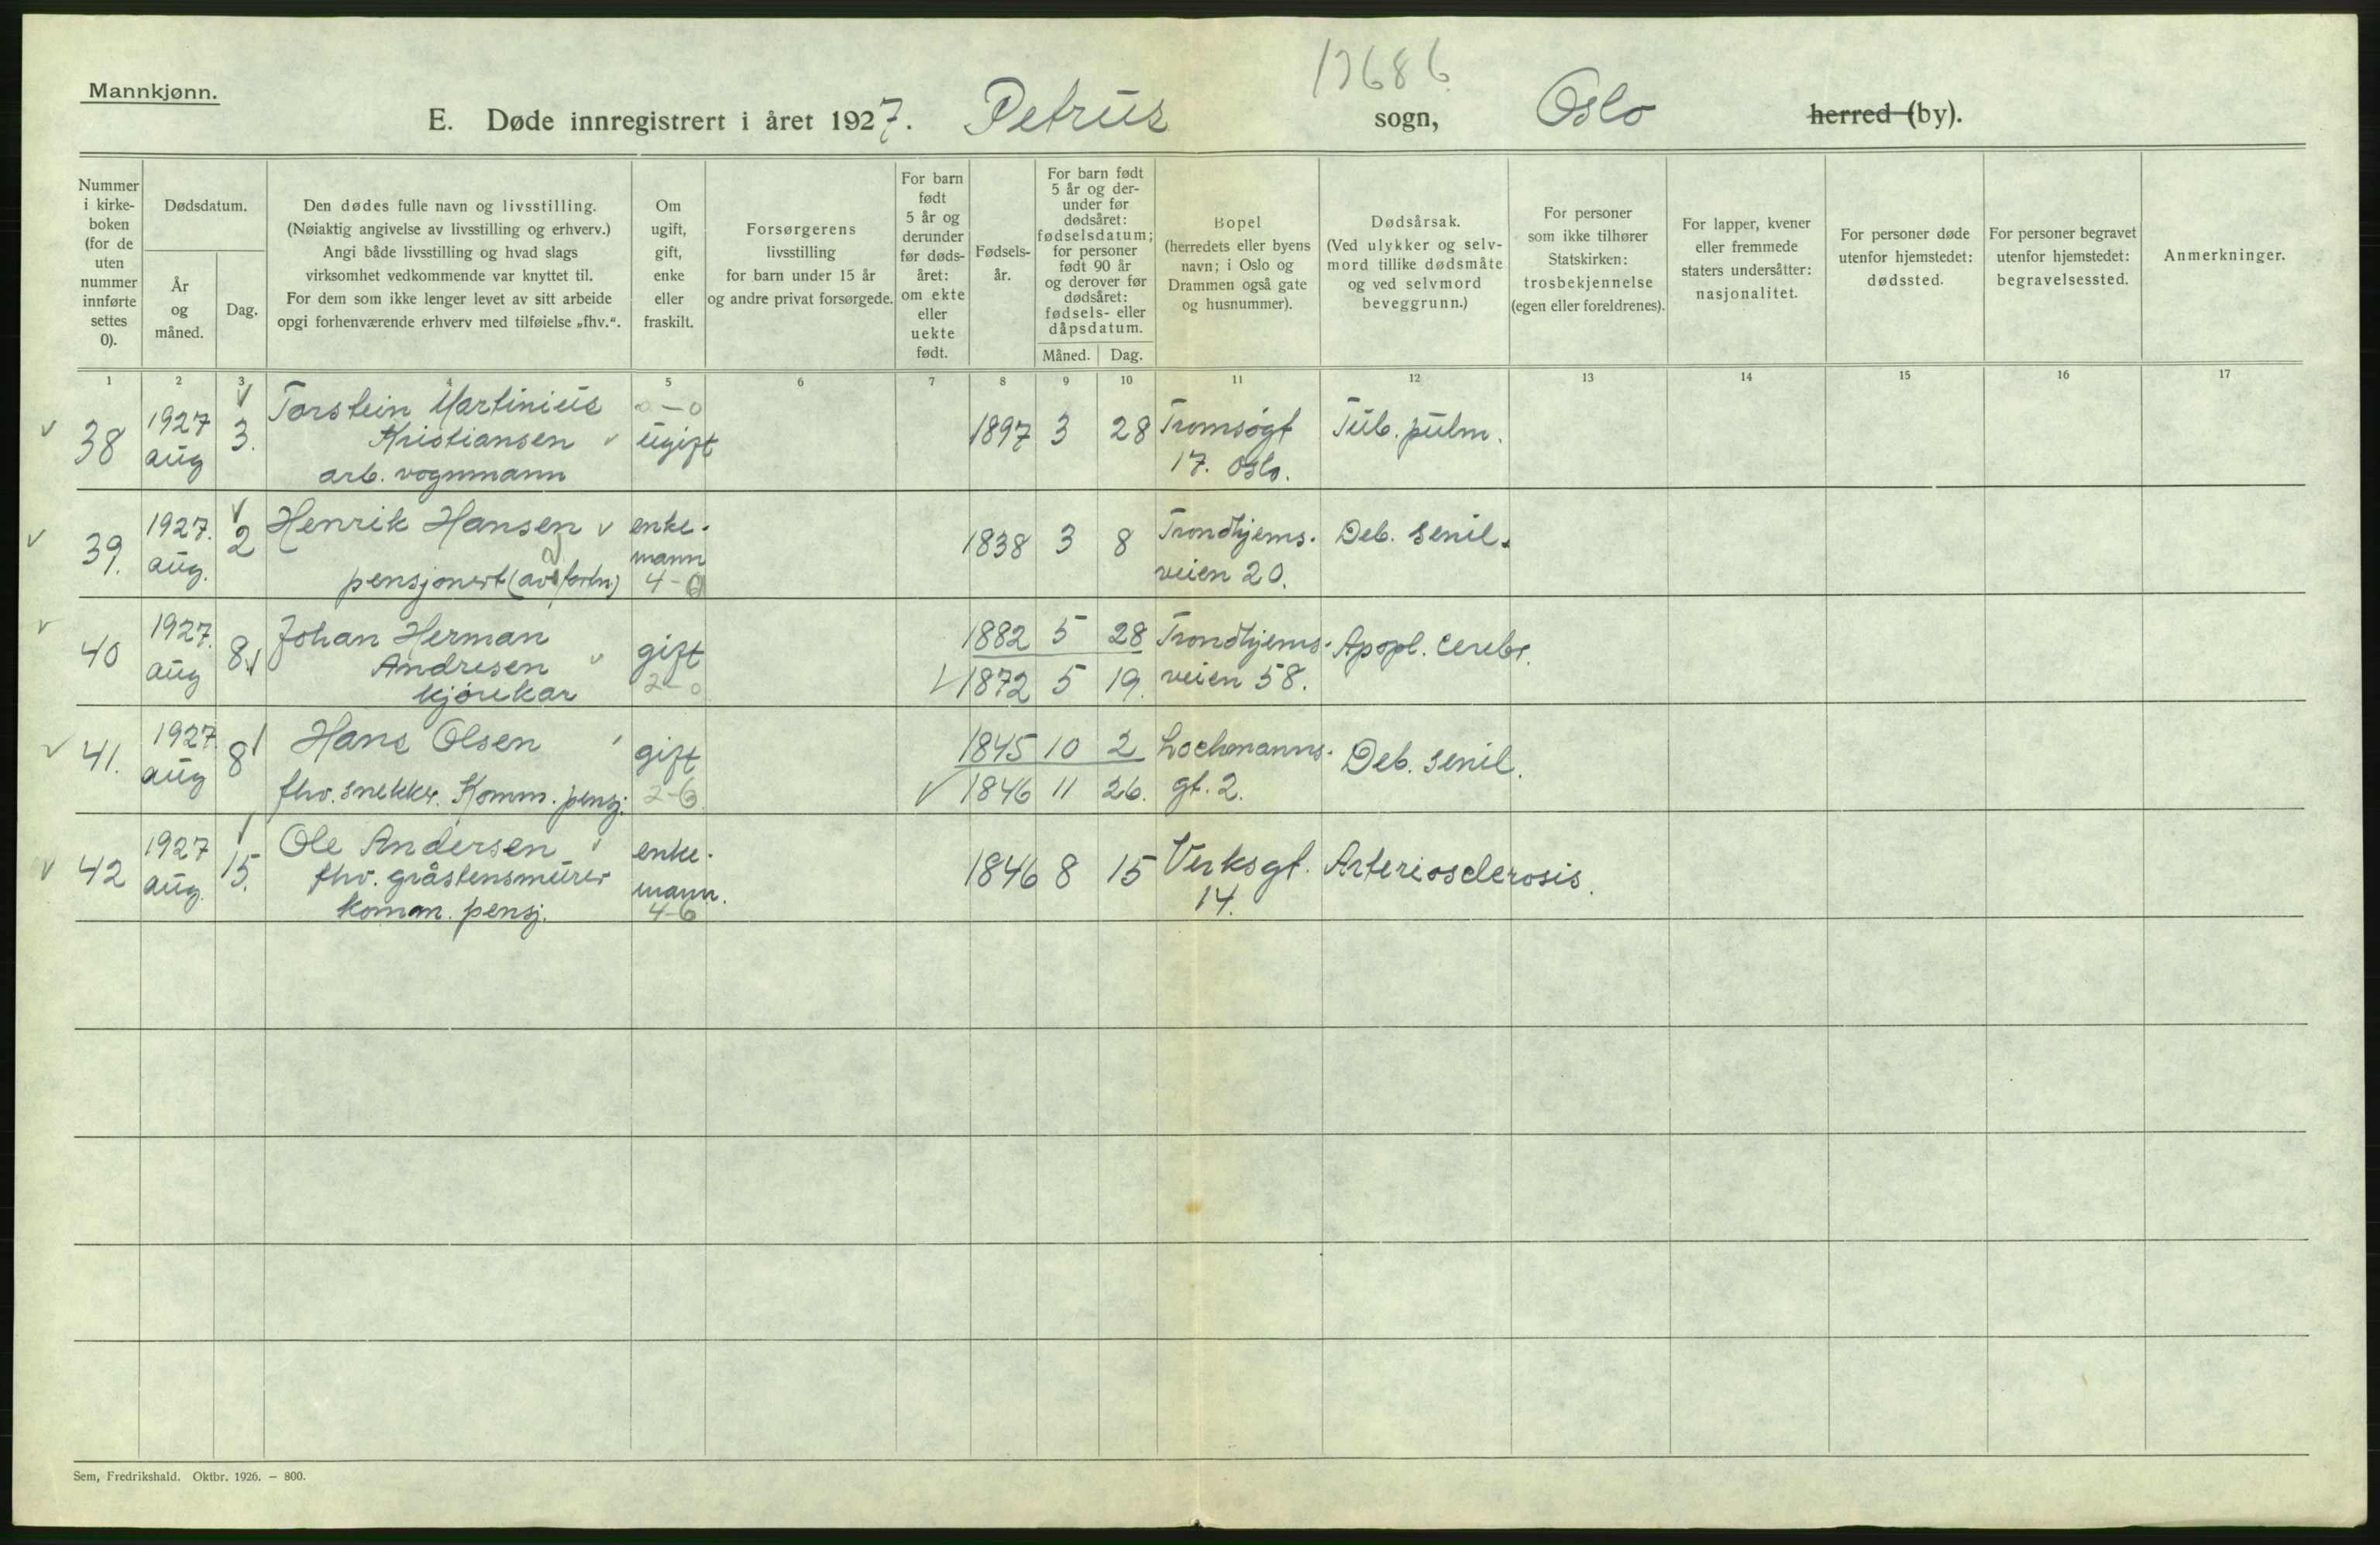 Mannkjønn.
13686
E. Døde innregistrert i året 1927. Petrus sogn, Oslo herred (by).
Nummer i kirke-boken (for de uten nummer innførte settes 0).
Dødsdatum.
År og måned.
Dag.
Den dødes fulle navn og livsstilling.
(Nøiaktig angivelse av livsstilling og erhverv.)
Angi både livsstilling og hvad slags
virksomhet vedkommende var knyttet til.
For dem som ikke lenger levet av sitt arbeide
opgi forhenværende erhverv med tilføielse „fhv.“.
Om ugift, gift, enke eller fraskilt.
Forsørgerens livsstilling for barn under 15 år og andre privat forsørgede.
For barn født 5 år og derunder før døds-året: om ekte eller uekte født.
Fødsels-år.
For barn født 5 år og der-under før dødsåret: fødselsdatum; for personer født 90 år og derover før dødsåret: fødsels- eller dåpsdatum.
Måned. Dag.
Bopel (herredets eller byens navn; i Oslo og Drammen også gate og husnummer).
Dødsårsak. (Ved ulykker og selv-mord tillike dødsmåte og ved selvmord beveggrunn.)
For personer som ikke tilhører Statskirken: trosbekjennelse (egen eller foreldrenes).
For lapper, kvener eller fremmede staters undersåtter: nasjonalitet.
For personer døde utenfor hjemstedet: dødssted.
For personer begravet utenfor hjemstedet: begravelsessted.
Anmerkninger.
1 2 3 4 5 6 7 8 9 10 11 12 13 14 15 16 17
38 1927 aug 3. Torstein Martinius Kristiansen arb. vognmann 0-0 ugift 1897 3 28 Tromsøgt 17. Oslo. Tub. pulm.
39. 1927. aug. 2 Henrik Hansen pensjonert (av fortn) enke-mann 4-0 1838 3 8 Trondhjems-veien 20. Deb. senil.
40 1927. aug 8 Johan Herman Andresen kjørekar gift 2-0 1882 5 28 1872 5 19. Trondhjems-veien 58. Apopl. cerebr.
41. 1927 aug 8 Hans Olsen fhv. snekker. Komm. pensj. gift 2-6 1845 10 2 1846 11 26. Lochmanns-gt. 2. Deb. senil.
42 1927 aug. 15. Ole Andersen fhv. gråstensmurer komm. pensj. enke-mann. 4-6 1846 8 15 Verksgt. 14. Arteriosclerosis.
Sem, Fredrikshald. Oktbr. 1926. – 800.